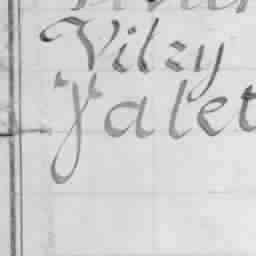 Vilzy
Valet